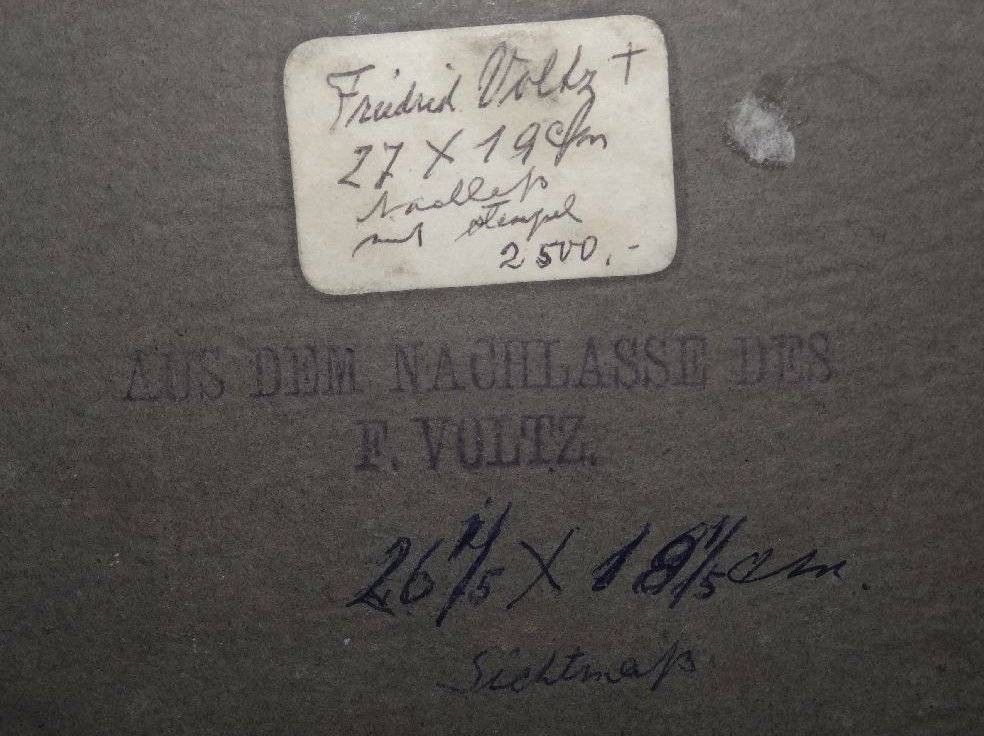 Friedrich Voltz †
27 X 19 cm
Nachlaß
mit Stempel
2500.-
AUS DEM NACHLASSE DES
F. VOLTZ.
26 4/5 X 18 4/5 cm.
Sichtmaß